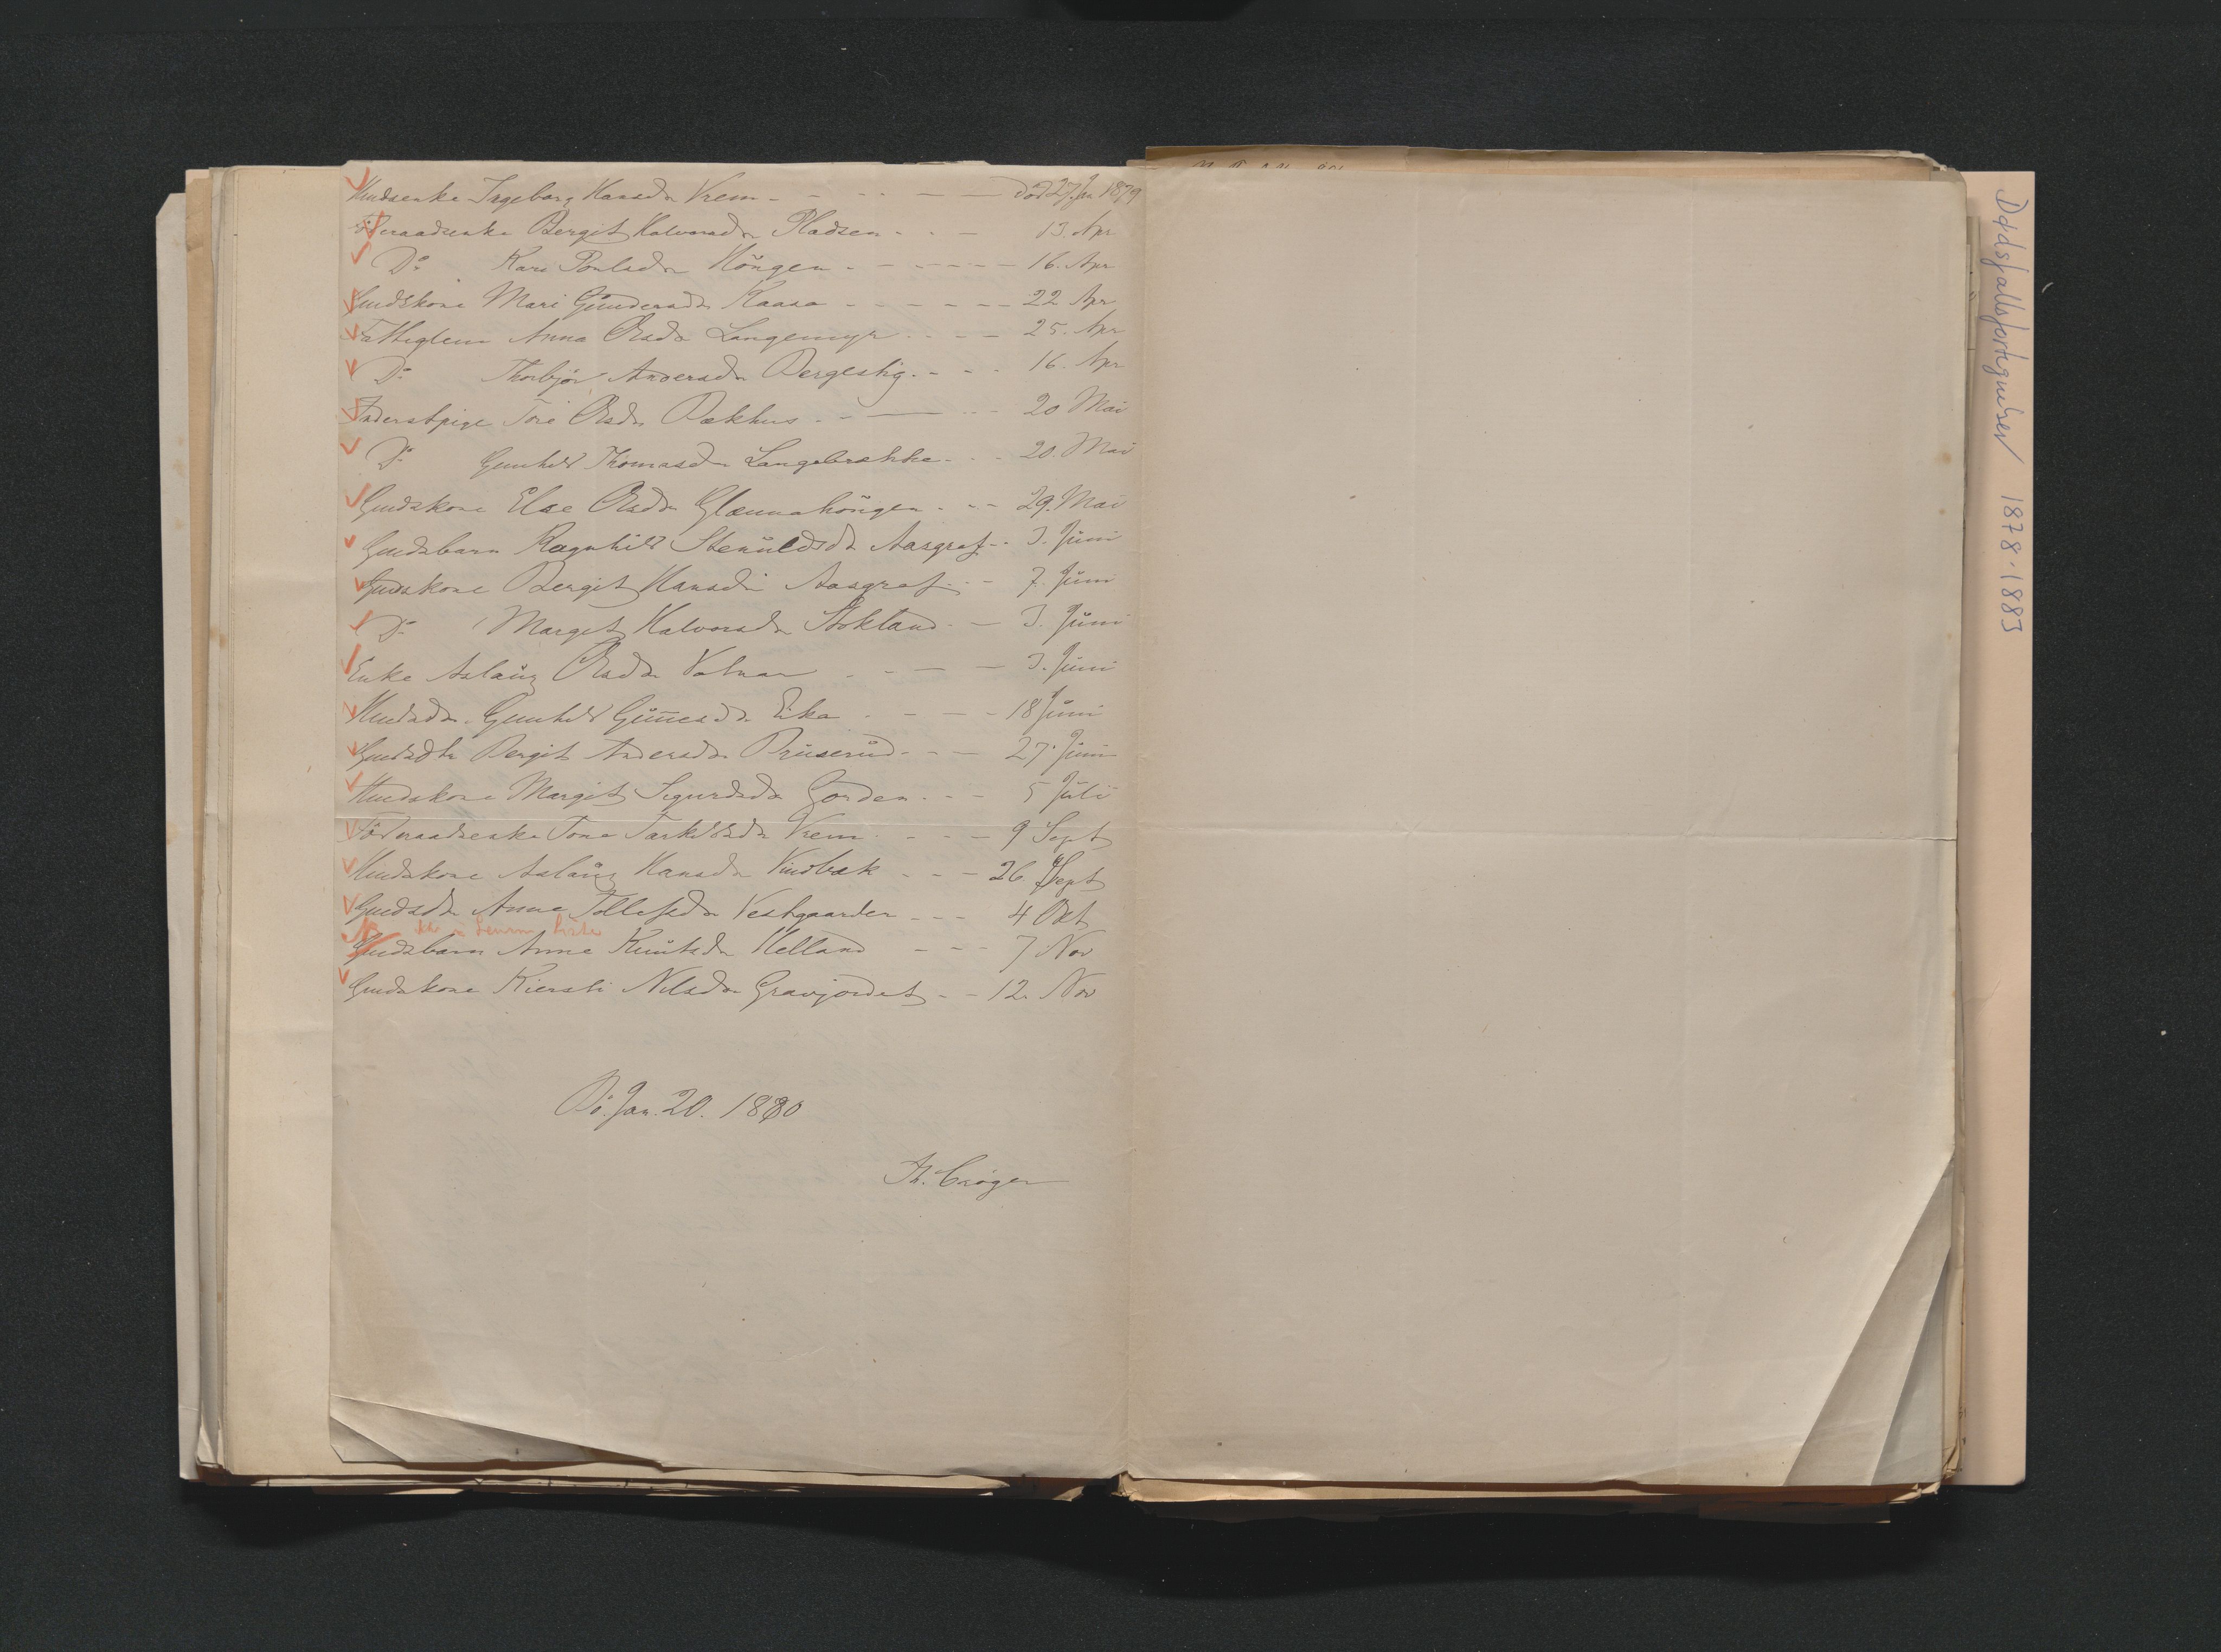 Huusenke Ingeborg Hansdr Vrem - - - - død 27. Jan 1879
Föderaadsenke Bergit Halvorsdr Pladsen - - - 13. Apr
Do Kari Poulsdr Höugen - - - - 16. Apr
Gmdskone Mari Gundersdr Kaasa - - - - 22 Apr
Fattiglem Anna Olsdr Langemyr - - - 25. Apr
Do Thorbjør Andersdr Bergestig - - - 16. Apr
Inderstpige Tone Olsdr Bakhus - - - 20 Mai
Do Gunhild Thomasdr Langebrække - - 20. Mai
Gmdskone Else Olsdr Glænnahöugen - - - 29. Mai
Gmdsbarn Ragnhild Stenuldsdr Aasgraf - - 3. Juni
Gmdskone Bergit Hansdr Aasgraf - - 7. Juni
Do Margit Halvorsdr Stokland - - 3. Juni
Enke Aslaug Olsdr Valnar - - - 3. Juni
Huusdr Gunhild Gunnesdr Eika - - - 18 Juni
Gmdsdtr Bergit Andersdr Pruserud - - - 27. Juni
Huuskone Margit Sigurdsdr Gorden - - - 5 Juli
Föderaadsenke Tone Tarkildsdr Vrem - - - 9 Sept
Huuskone Aslaug Hansdr Vindbæk - - - 26 Sept
Gmdsdr Anne Tollefsdr Vestgaarden - - - 4 Okt
i denne liste
Gmdsbarn Anne Knutsdr Helland - - - 7 Nov
Gmdskone Kiersti Nilsdr Gravjordet - - 12. Nov
Bö. Jan. 20. 1880
Th. Cröger
Dødsfallsfortegnelser 1878-1883